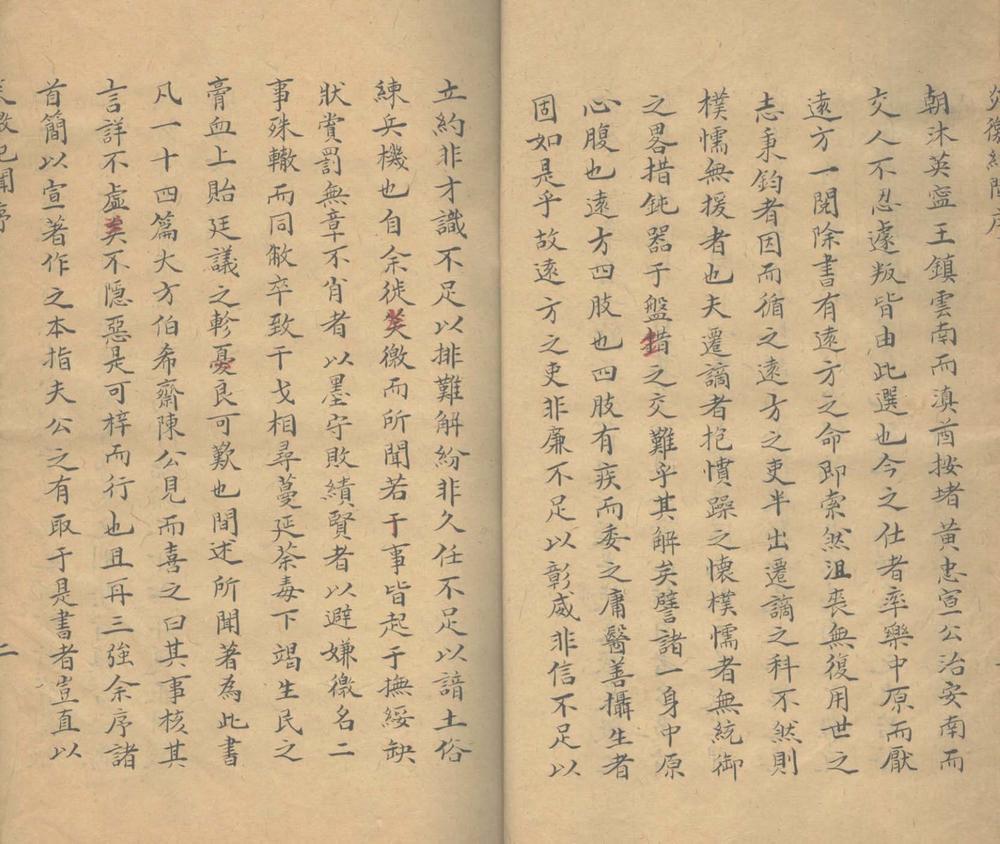 炎徼紀聞序
朝沐英寍王鎮雲南而滇酋按堵黄忠宣公治安南而
交人不忍遽叛皆由此選也今之仕者率樂中原而厭
遠方一閱除書有遠方之命即索然沮喪無復用世之
志秉鈞者因而循之遠方之吏半出遷謫之科不然則
樸懦無援者也夫遷謫者抱憤躁之懷樸懦者無統御
之畧措鈍器于盤錯之交難乎其解矣譬諸一身中原
心腹也遠方四肢也四肢有疾而委之庸醫善攝生者
固如是乎故遠方之吏非廉不足以彰威非信不足以
立約非才識不足以排難解紛非久任不足以諳土俗
練兵機也自余徙炎徼而所聞若干事皆起于撫綏缺
狀賞罰無章不肖者以墨守敗績賢者以避嫌徼名二
事殊轍而同敝卒致干戈相尋蔓延荼毒下竭生民之
膏血上貽廷議之軫憂良可歎也間述所聞著為此書
凡一十四篇大方伯希齋陳公見而喜之曰其事核其
言詳不虛美不隱惡是可梓而行也且再三強余序諸
首簡以宣著作之本指夫公之有取于是書者豈直以
炎徼紀聞序
二